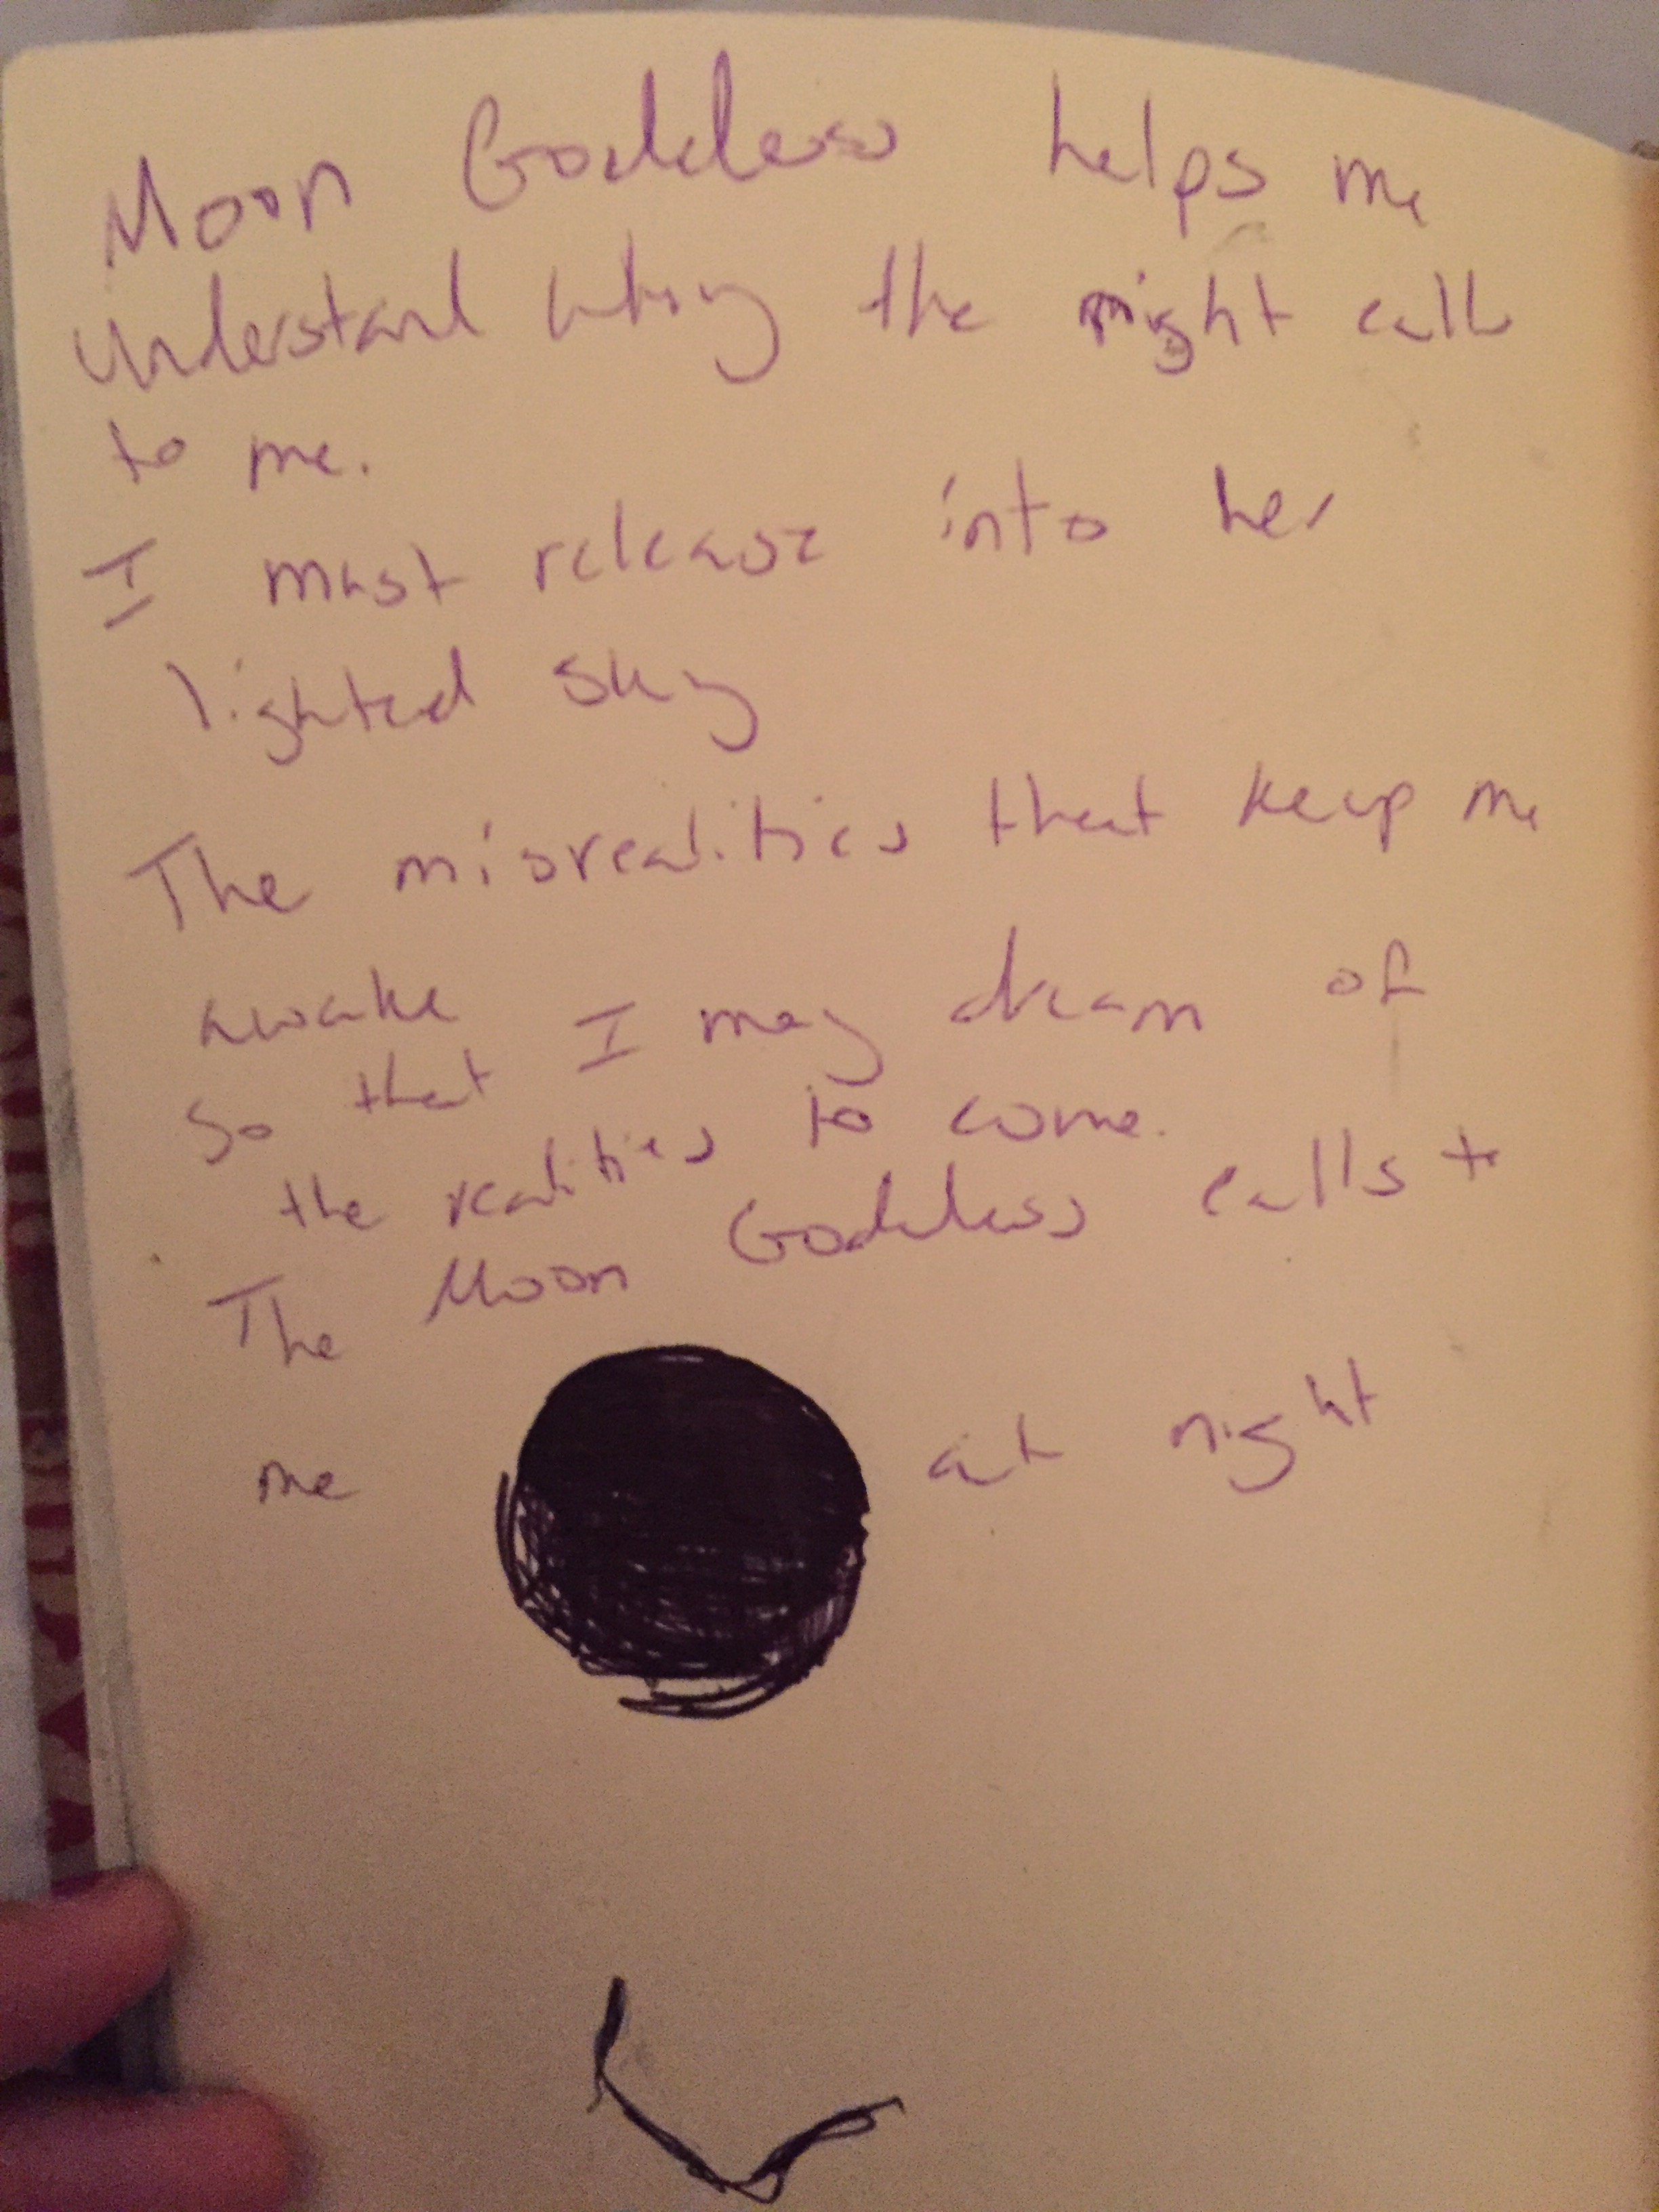 Moon Goddess helps me
understand why the night calls
to me.
I must release into her
lighted sky
The misrealities that keep me
awake
So that I may dream of
the realities to come.
The Moon Goddess calls to
me at night